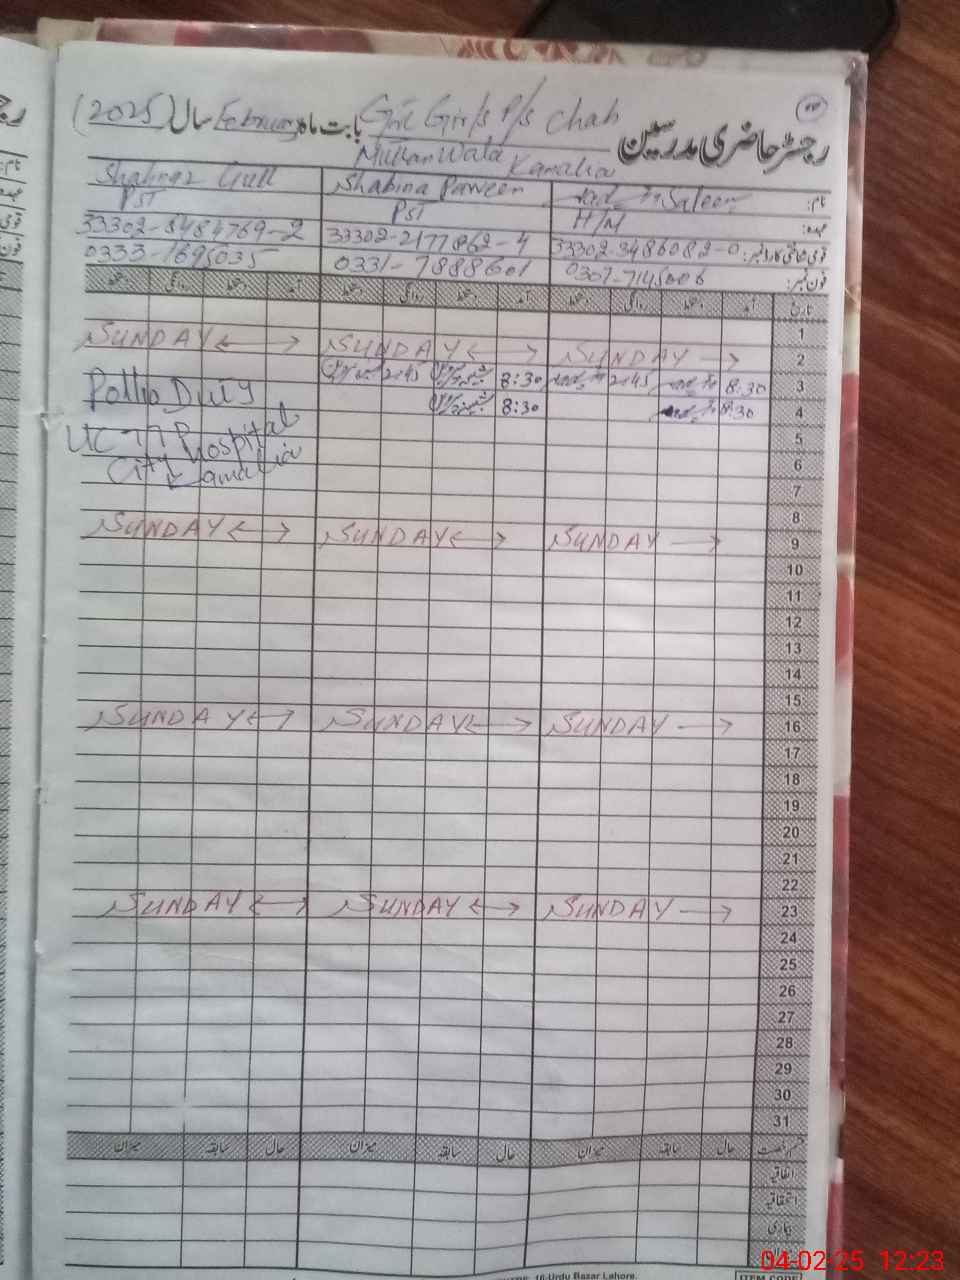 رجسٹر حاضری مدرسین بابت ماہ February سال (2025)
Girls P/s Chah
Multan Wala Kamalia
نام: Shabina Parveen Gull
عہدہ: H/M PST PST
قومی شناختی کارڈ نمبر: 33302-3486082-0 33302-2177862-4 33302-8484769-2
فون نمبر: 0307-7145006 0331-7888601 0333-1695035
تاریخ آمد دستخط روانگی دستخط آمد دستخط روانگی دستخط آمد دستخط روانگی دستخط
1
2 SUNDAY SUNDAY SUNDAY
3 8:30 2:45 8:30 2:45 Polio Duty
4 8:30 8:30 UC-77 Hospital
5 City Kamalia
6
7
8
9 SUNDAY SUNDAY SUNDAY
10
11
12
13
14
15
16 SUNDAY SUNDAY SUNDAY
17
18
19
20
21
22
23 SUNDAY SUNDAY SUNDAY
24
25
26
27
28
29
30
31
حال سابقہ میزان حال سابقہ میزان حال سابقہ میزان
اتفاقیہ
استحقاقیہ
بیماری
16-Urdu Bazar Lahore.
ITEM CODE
04-02-25 12:23